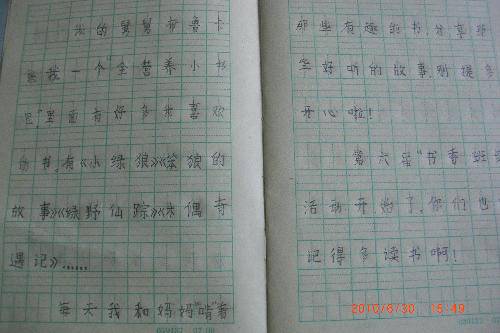 我的舅舅布鲁卡
送我一个全营养小书
包",里面有好多我喜欢
的书,有《小绿狼》《笨狼的
故事》《绿野仙踪》《木偶奇
遇记》……
每天我和妈妈“啃”着
那些有趣的书,分享那
些好听的故事,别提多
开心啦!
第六届“书香班
活动开始了,你们也
记得多读书啊!
2010/6/30 15:49